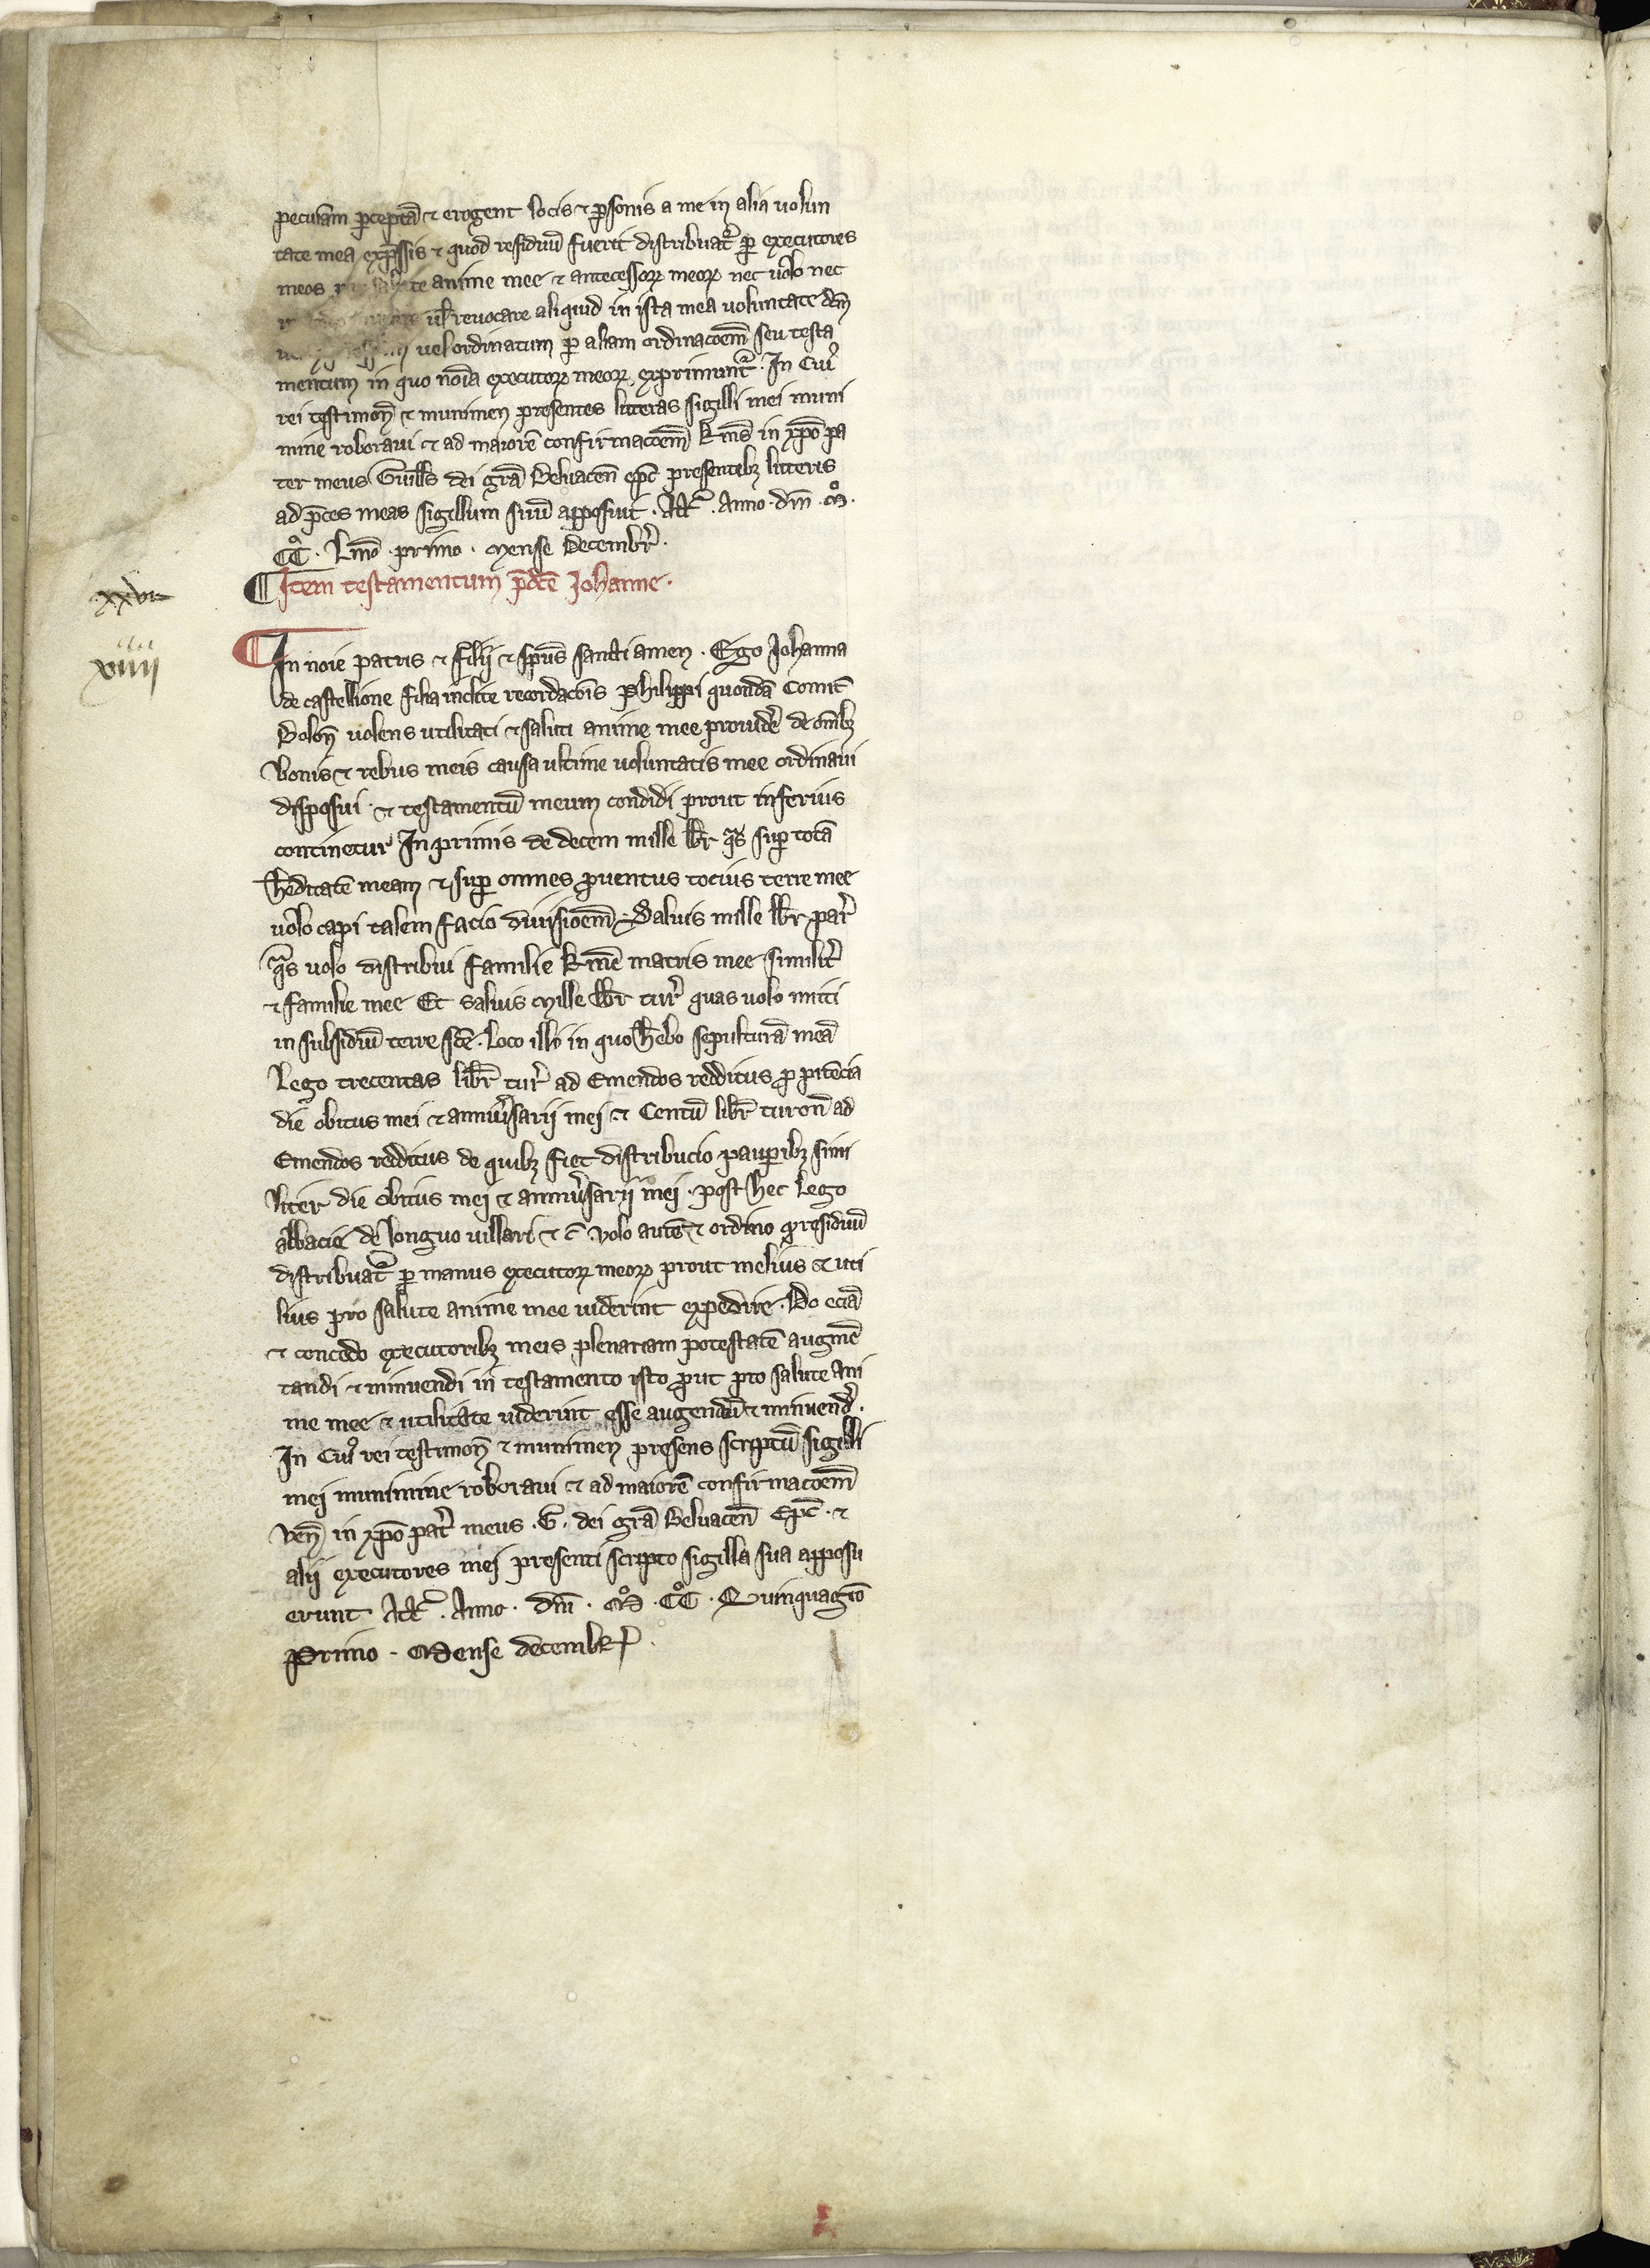 pecuniam p̄ceptā ⁊ erogent locis ⁊ p̱sonis a me in alia uolun
tate mea exp̄ssis ⁊ quod residuū fuerit distribuat᷑ p̱ executores
meos anime mee ⁊ antecessoꝝ meoꝝ nec uolo nec
ul̄ reuocare aliquid in ista mea uoluntate
uel ordinatum p̱ aliam ordinacōem̄ seu testa
mentum in quo noīa executoꝝ meoꝝ exprimunt᷑. In Cuiꝰ
rei testimoń ⁊ munimen presentes litteras sigilli mei muni
mine roboraui ⁊ ad maiorē confirmacōem̄ kmꝰ in xp̄o pa
ter meus Guill̄s dei grā Beluaceń ep̄c presentibꝫ litteris
ad p̄ces meas sigillum suū apposuit. Actꝭ. Anno. dn̄i. Mº.
CCº. Lmō. primo. Mense Decembrꝭ.
¶ Item testamentum p̄dc̄e Johanne.
xxvii
iiii
xiiii
In noīe patris ⁊ filij ⁊ sp̄us sancti amen. Ego Johanna
de castellione filia inclite recordac̄ois Philippi quondā Comit̄
Boloń uolens utilitati ⁊ saluti anime mee prouidē de om̄ibꝫ
bonis ⁊ rebus meis causa ultime uoluntatis mee ordinaui
disposui ⁊ testamentū meum condidi prout inferius
continetur In primis de decem mille lib̄r q̄s sup̱ totā
h̄editatē meam ⁊ sup̱ omnes ꝓuentus tocius terre mee
uolo capi talem facio diuisioēm. Saluis mille lib̄r parꝭ
q̄s uolo distribui familie kmē matris mee similit᷑
⁊ familie mee Et saluis Mille lib̄r turꝭ quas uolo mitti
in subsidiū terre sc̄e. Loco illi in quo h̄ebo sepulturā meā
Lego trecentas lib̄r turꝭ ad Emendos redditus ꝓ pitēcia
die obitus mei ⁊ anniūsarii mei ⁊ Centū lib̄r turoń ad
Emendos redditus de quibꝫ fiet distribucio paup̱ibꝫ simi
liter die obitus mei ⁊ anniūsarij mei. post hec Lego
abbacie de longuo uillari ⁊ c̄ uolo autē ⁊ ordino ꝙ residuū
distribuat᷑ p̱ manus executoꝝ meoꝝ prout melius ⁊ uti
lius pro salute anime mee uiderint expedire. Do eciā
⁊ concedo executoribꝫ meis plenariam potestatē augmē
tandi ⁊ minuendi in testamento isto ꝓut pro salute ani
me mee ⁊ utilitate uiderint esse augendū ⁊ minuendꝭ.
In Cuiꝰ rei testimoń ⁊ munimen presens scriptū sigilli
mei munimine roboraui ⁊ ad maiorē confirmacōem̄
Veń in xp̄o pat᷑ meus. G. dei grā Beluaceń Ep̄c. ⁊
alij executores mei presenti scripto sigilla sua apposu
erunt Actꝭ. Anno. dn̄i. Mº. CCº. Quinquagīo
Primo. Mense decembrꝭ.